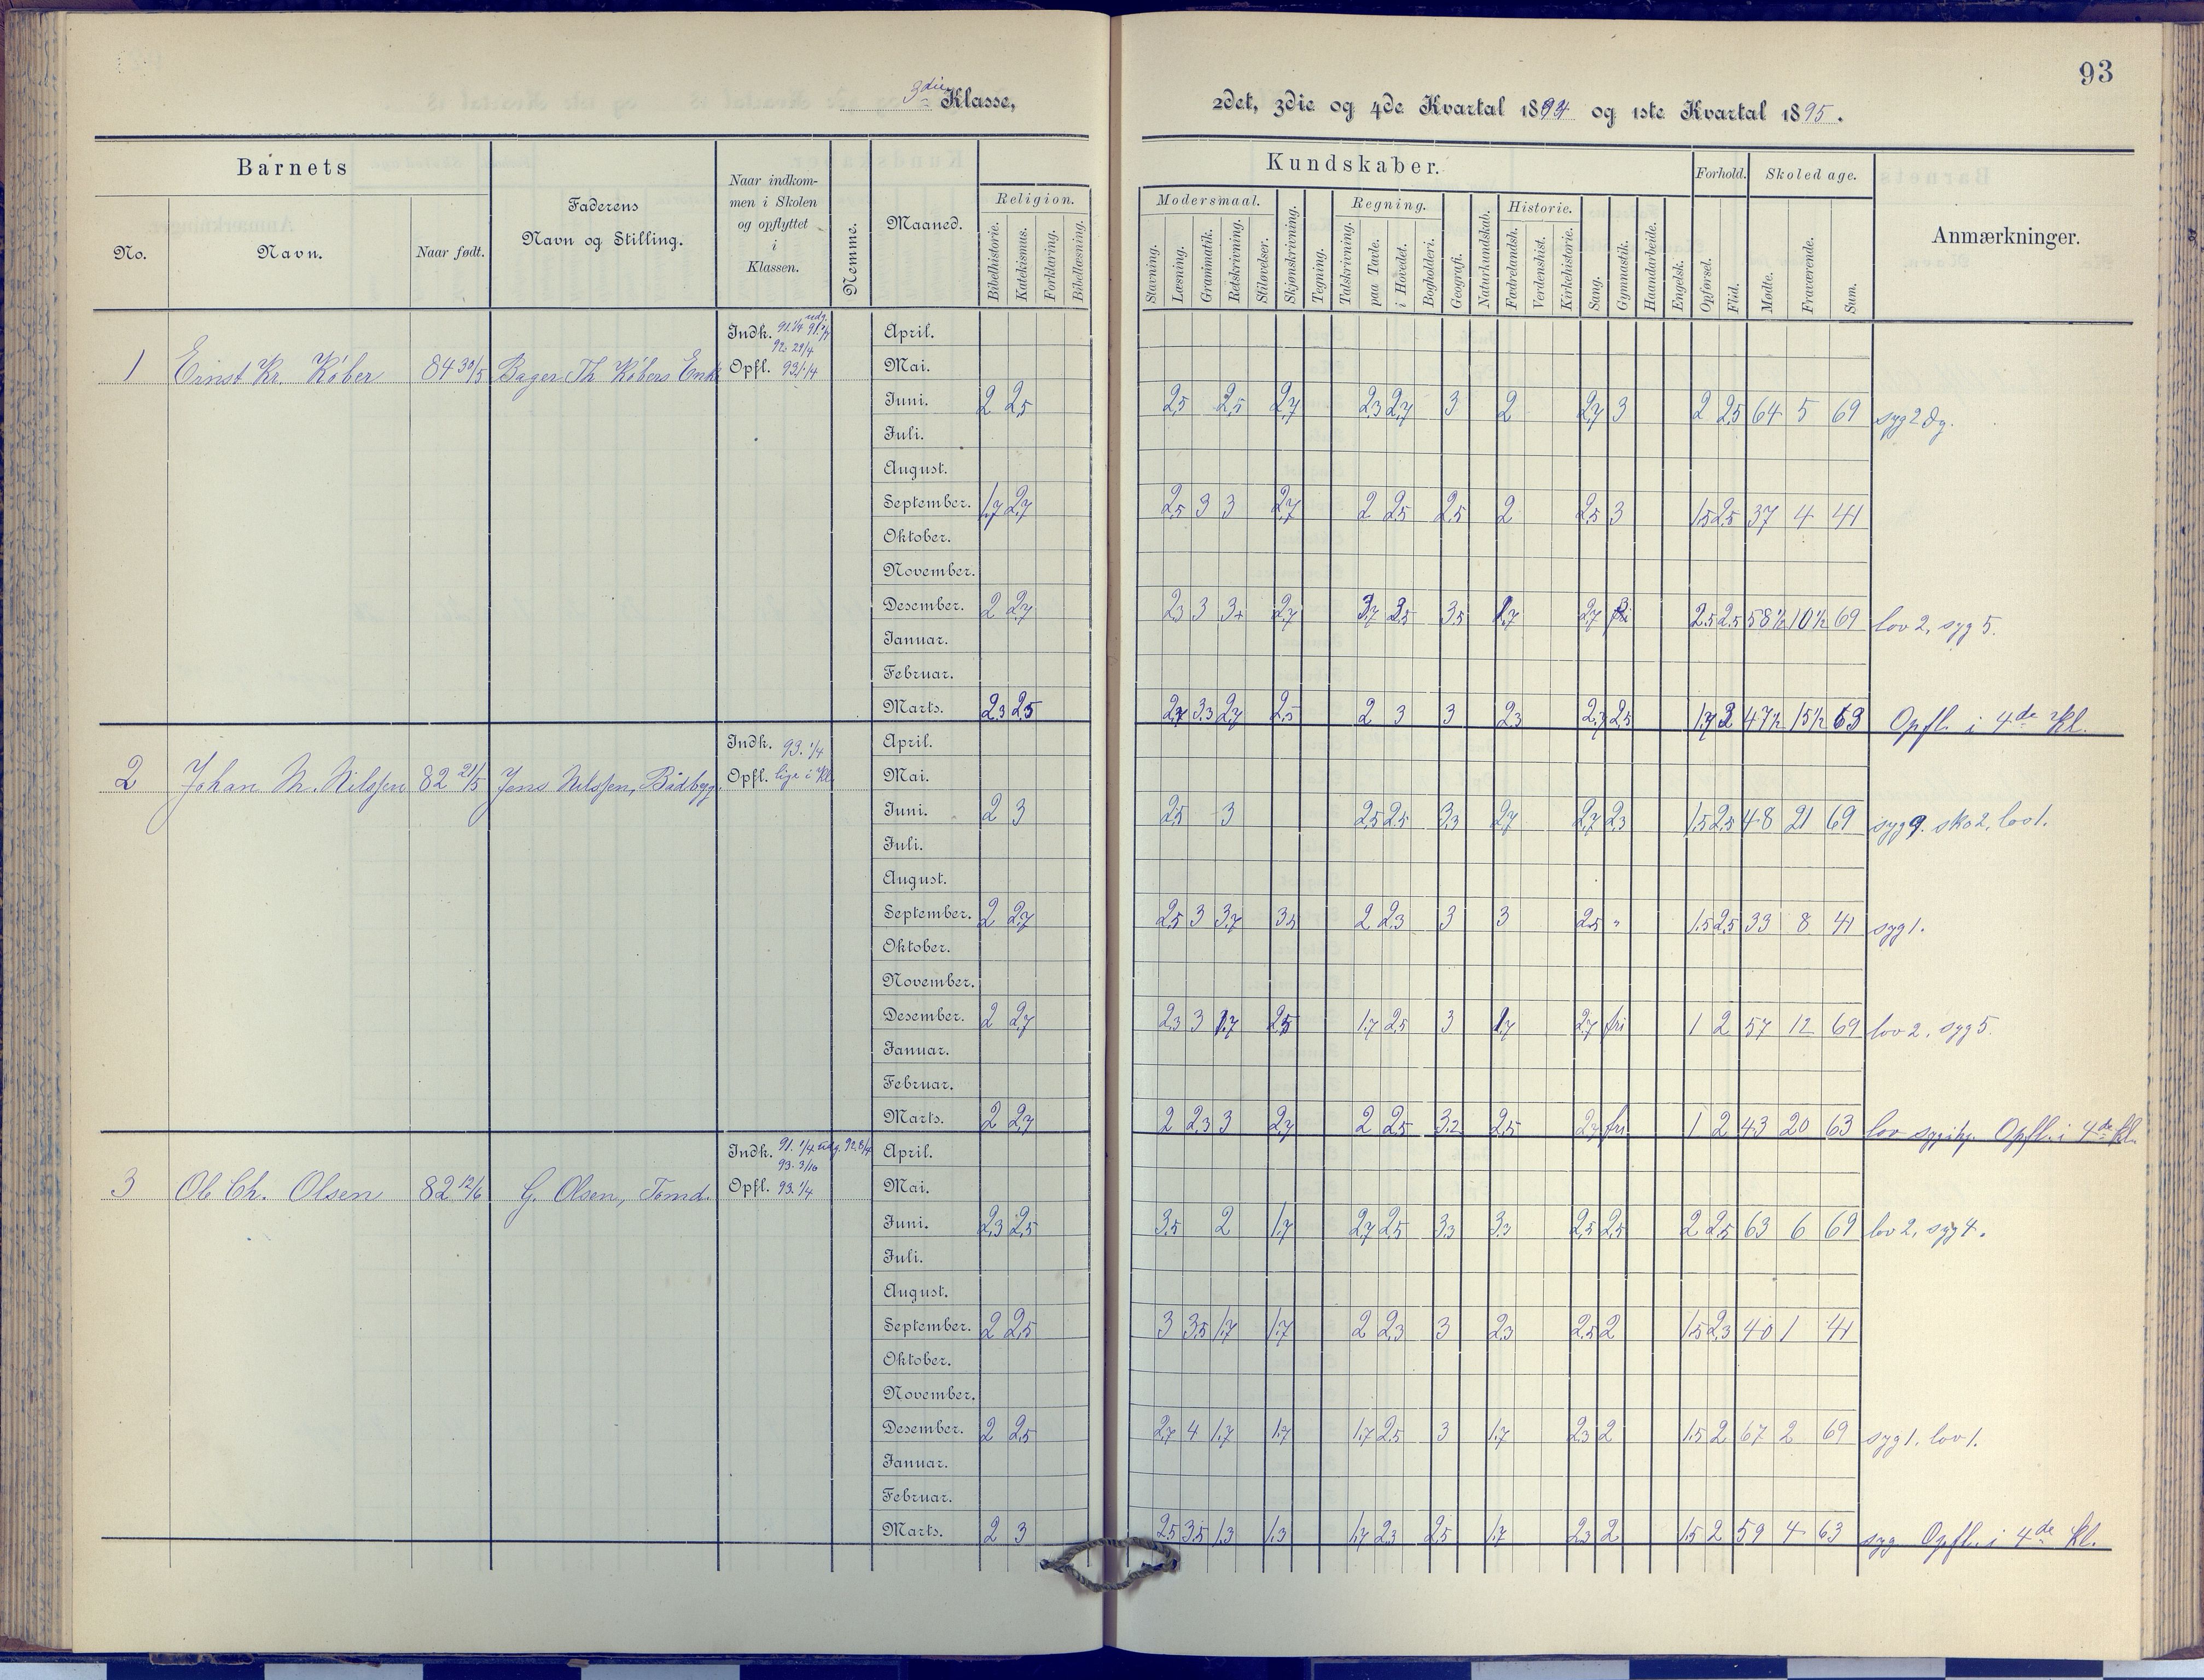 93
3die Klasse, 2det, 3die og 4de Kvartal 1894 og 1ste Kvartal 1895.
Barnets
No. Navn. Naar født.
Faderens Navn og Stilling.
Naar indkommen i Skolen og opflyttet i Klassen.
Nemme.
Maaned.
Kundskaber.
Religion. Bibelhistorie. Katekismus. Forklaring. Bibellæsning.
Modersmaal. Stavning. Læsning. Grammatik. Retskrivning. Stiløvelser.
Skjønskrivning. Tegning.
Regning. Talskrivning. paa Tavle. i Hovedet. Bogholderi.
Geografi. Naturkundskab.
Historie. Fædrelandsh. Verdenshist. Kirkehistorie.
Sang. Gymnastik. Haandarbeide. Engelsk.
Forhold. Opførsel. Flid.
Skoledage. Mødte. Fraværende. Sum.
Anmærkninger.
1 Ernst Kr. Køber 84 30/5 Bager Th Købers Enke
Indk. 91.1/4 udg.
92. 29/4
Opfl. 93 1/4
April.
Mai.
Juni. 2 2,5 2,5 2,5 2,7 2,3 2,7 3 2 2,7 3 2 2,5 64 5 69 syg 2 dg.
Juli.
August.
September. 1,7 2,7 2,5 3 3 2,7 2 2,5 2,5 2 2,5 3 1,5 2,5 37 4 41
Oktober.
November.
Desember. 2 2,7 2,3 3 3+ 2,7 3,7 3,5 3,5 1,7 2,7 2,5 2,5 58½ 10½ 69 lov 2, syg 5.
Januar.
Februar.
Marts. 2,3 2,5 2,7 3,3 2,7 2,5 2 3 3 2,3 2,7 2,5 1,7 2 47½ 15½ 63 Opfl. i 4de Kl.
2 Johan M. Nilssen 82 21/5 Jens Nilssen, Bådbygg.
Indk. 93. 1/4
Opfl. lige i Kl.
April.
Mai.
Juni. 2 3 2,5 3 2,5 2,5 3,3 2,7 2,7 2,3 1,5 2,5 48 21 69 syg 9. sko 2, lov 1.
Juli.
August.
September. 2 2,7 2,5 3 3,7 3,5 2 2,3 3 3 2,5 " 1,5 2,5 33 8 41 syg 1.
Oktober.
November.
Desember. 2 2,7 2,3 3 1,7 2,5 1,7 2,5 3 1,7 2,7 fri 1 2 57 12 69 lov 2, syg 5.
Januar.
Februar.
Marts. 2 2,7 2 2,3 3 2,7 2 2,5 3,2 2,5 2,7 fri 1 2 43 20 63 lov Opfl. i 4de Kl.
3 Ole Ch. Olsen 82 12/6 G. Olsen, Tømd.
Indk. 91. 1/4 udg. 92. 8/4
93. 3/10
Opfl. 93. 1/4
April.
Mai.
Juni. 2,3 2,5 3,5 2 1,7 2,7 2,5 3,3 3,3 2,5 2,5 2 2,5 63 6 69 lov 2, syg 4.
Juli.
August.
September. 2 2,5 3 3,5 1,7 1,7 2 2,3 3 2,3 2,5 2 1,5 2,3 40 1 41
Oktober.
November.
Desember. 2 2,5 2,7 4 1,7 1,7 1,7 2,5 3 1,7 2,3 2 1,5 2 67 2 69 syg 1, lov 1.
Januar.
Februar.
Marts. 2 3 2,5 3,5 1,3 1,3 1,7 2,3 2,5 1,7 2,3 2 1,5 2 59 4 63 syg Opfl. i 4de Kl.